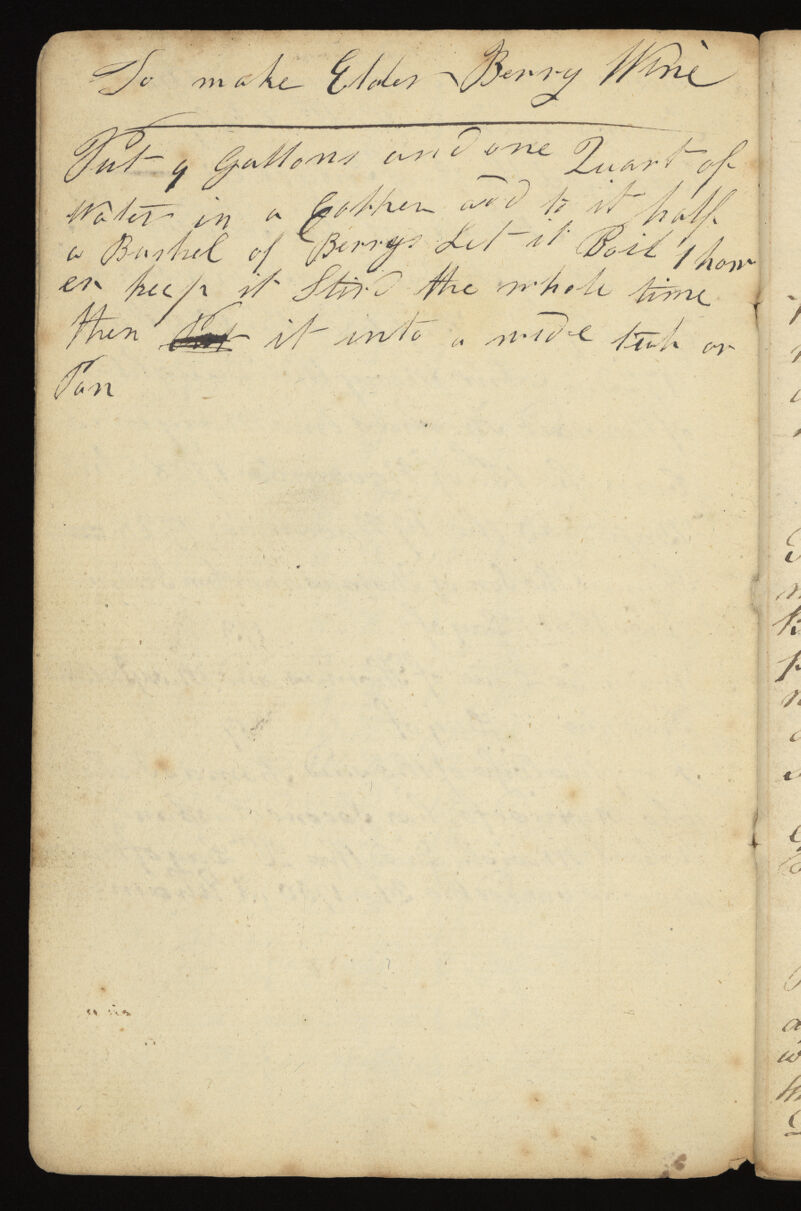 To make Elder Berry Wine
Put 9 Gallons and one Quart of
Water in a Copper add to it half
a Bushel of Berrys Let it Boil 1 how
er keep it Stird the whole time
then it into a wide tub or
Pan